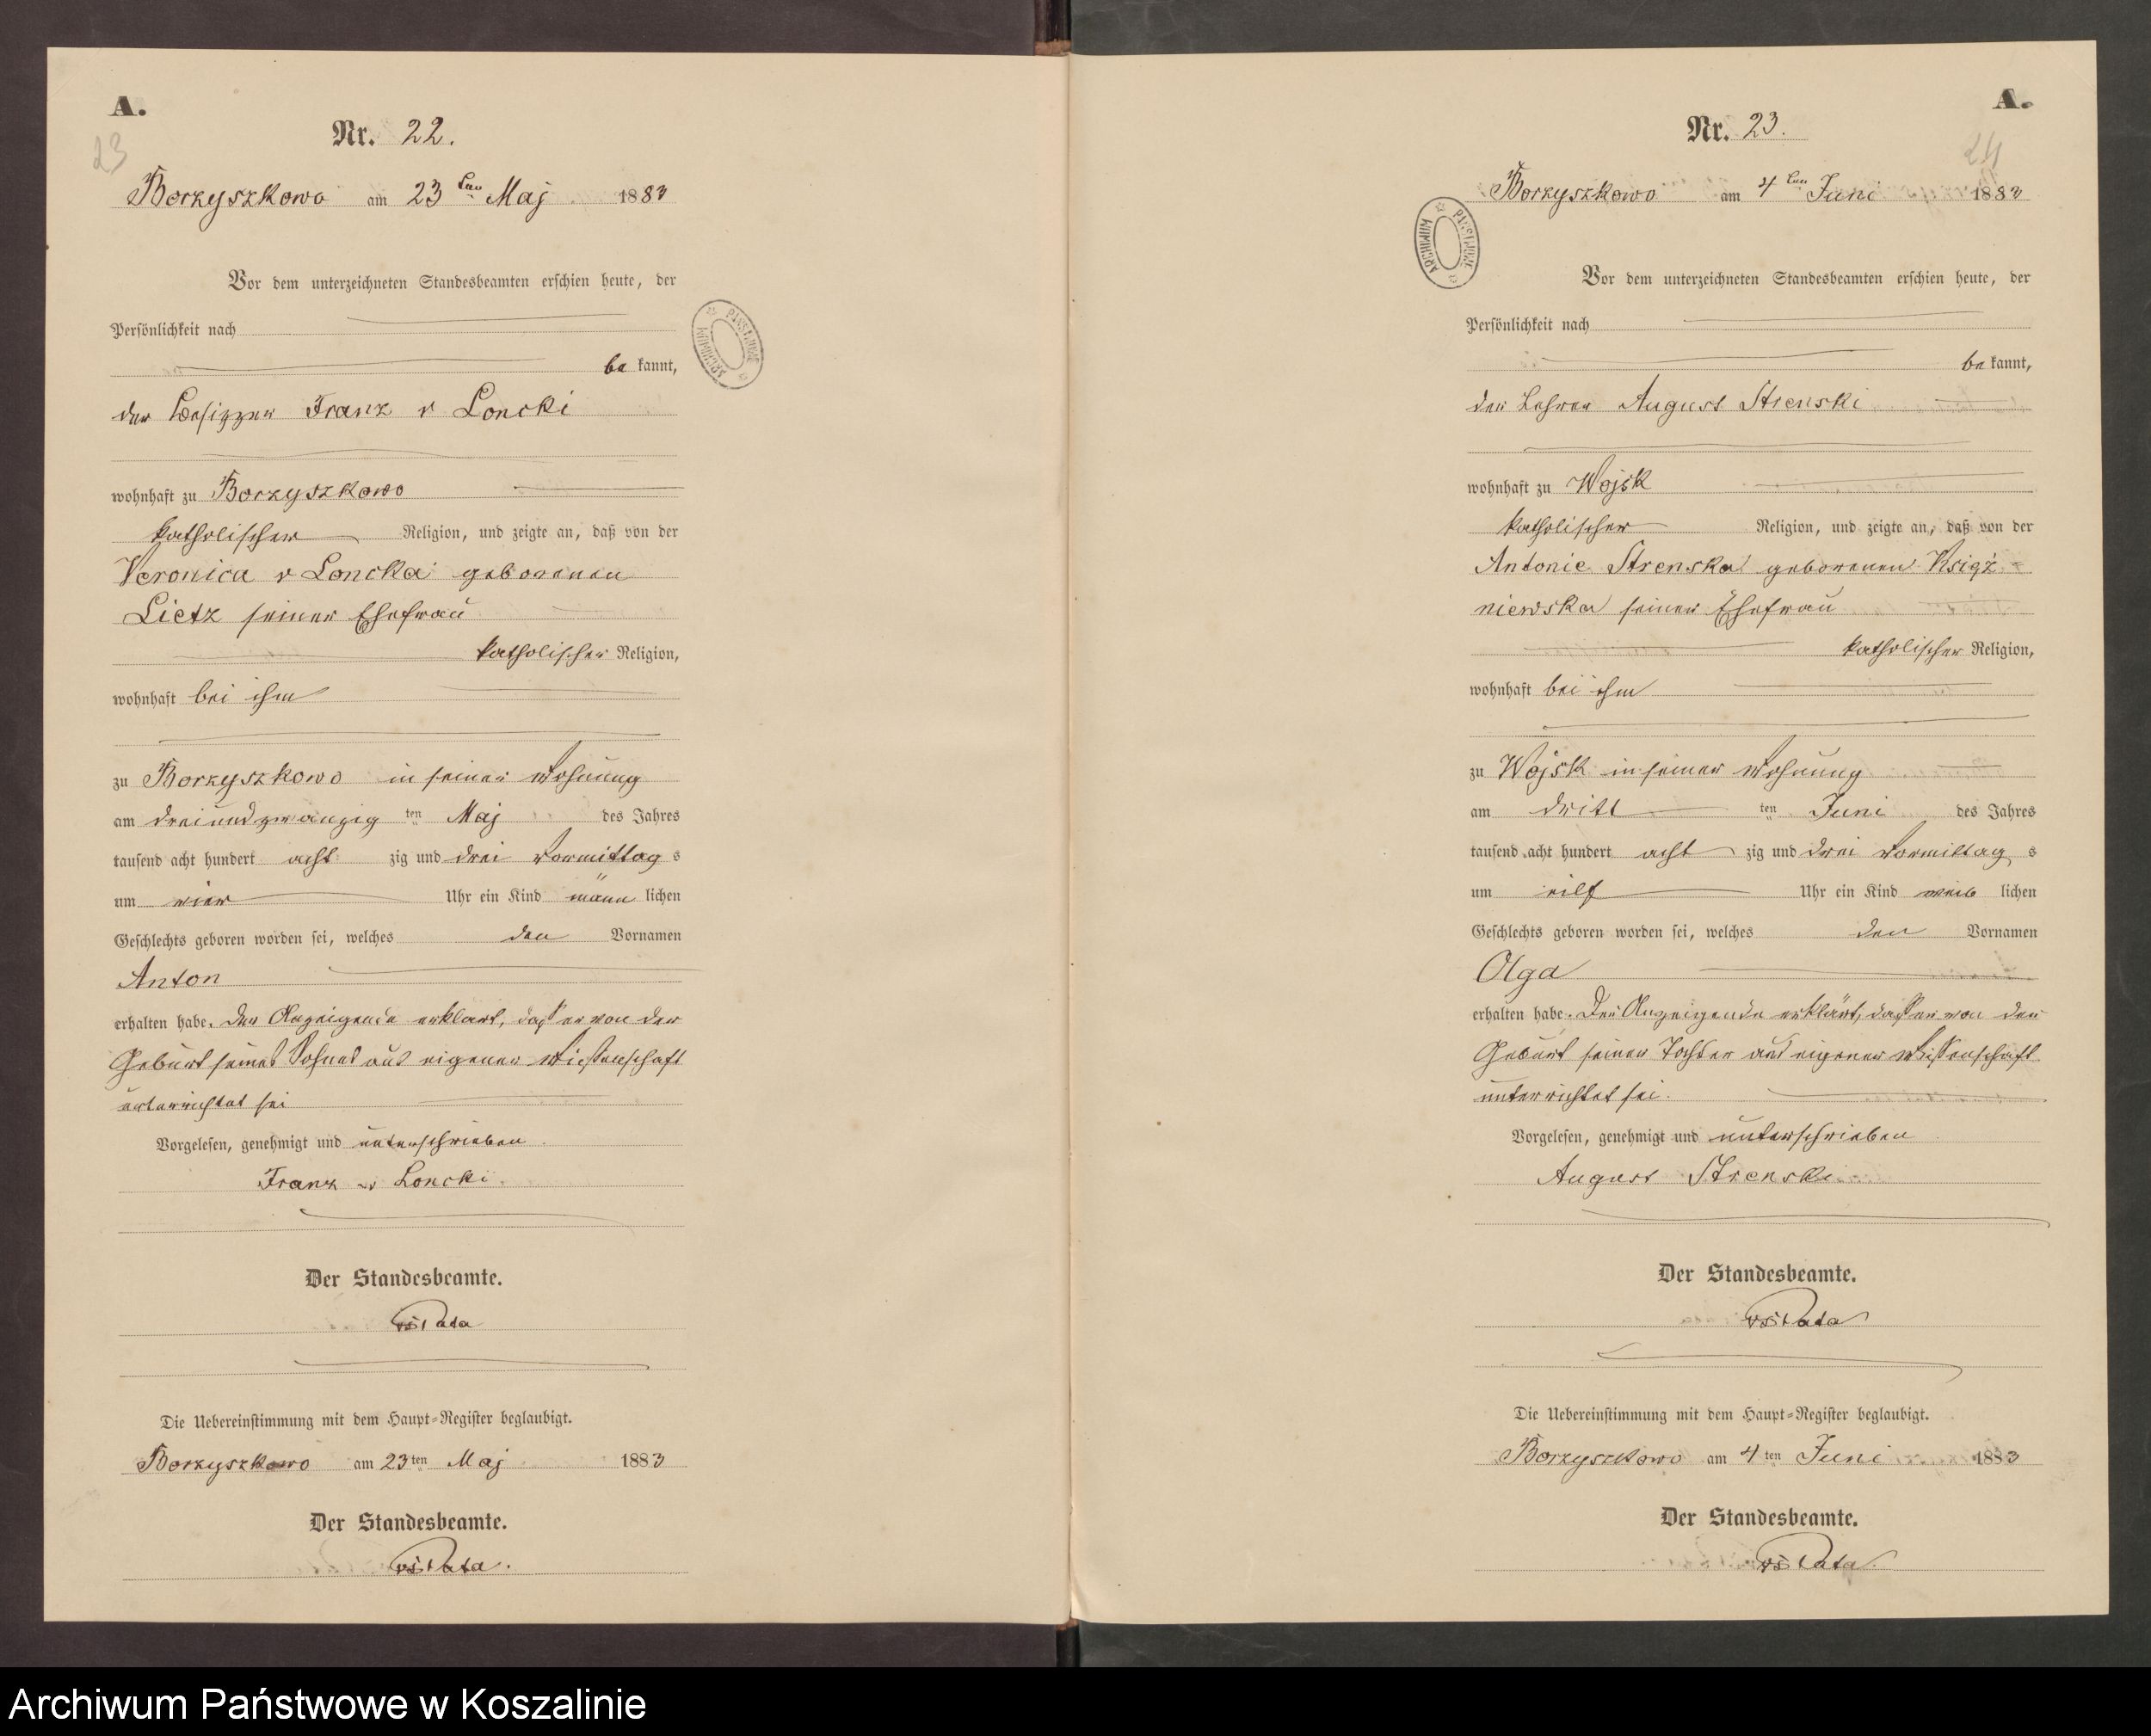 A.
23
Nr. 22.
Borzyszkowo am 23ten Maj 1883
Vor dem unterzeichneten Standesbeamten erschien heute, der
Persönlichkeit nach
be kannt,
der Besitzer Franz v Loncki
wohnhaft zu Borzyszkowo
katholischer Religion, und zeigte an, daß von der
Veronica v Loncka geborenen
Lietz seiner Ehefrau
katholischer Religion,
wohnhaft bei ihm
zu Borzyszkowo in seiner Wohnung
am dreiundzwanzig ten Maj des Jahres
tausend acht hundert acht zig und drei Vormittag s
um vier Uhr ein Kind männ lichen
Geschlechts geboren worden sei, welches den Vornamen
Anton
erhalten habe. Der Anzeigende erklärt, daß er von der
Geburt seines Sohnes aus eigener Wissenschaft
unterrichtet sei
Vorgelesen, genehmigt und unterschrieben.
Franz v Loncki
Der Standesbeamte.
Die Uebereinstimmung mit dem Haupt-Register beglaubigt.
Borzyszkowo am 23ten Maj 1883
Der Standesbeamte.
ARCHIWUM PAŃSTWOWE
A.
24
Nr. 23.
Borzyszkowo am 4ten Juni 1883
Vor dem unterzeichneten Standesbeamten erschien heute, der
Persönlichkeit nach
be kannt,
der Lehrer August Strenski
wohnhaft zu Wojsk
katholischer Religion, und zeigte an, daß von der
Antonie Strenska geborenen Książ-
niewska seiner Ehefrau
katholischer Religion,
wohnhaft bei ihm
zu Wojsk in seiner Wohnung
am dritt ten Juni des Jahres
tausend acht hundert acht zig und drei Vormittag s
um eilf Uhr ein Kind weib lichen
Geschlechts geboren worden sei, welches den Vornamen
Olga
erhalten habe. Der Anzeigende erklärt, daß er von der
Geburt seiner Tochter aus eigener Wissenschaft
unterrichtet sei.
Vorgelesen, genehmigt und unterschrieben
August Strenski
Der Standesbeamte.
Die Uebereinstimmung mit dem Haupt-Register beglaubigt.
Borzyszkowo am 4ten Juni 1883
Der Standesbeamte.
ARCHIWUM PAŃSTWOWE
Archiwum Państwowe w Koszalinie